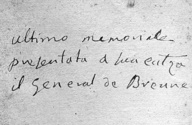 ultimo memoriale
presentato a sua ecc.za
il General de Brenne